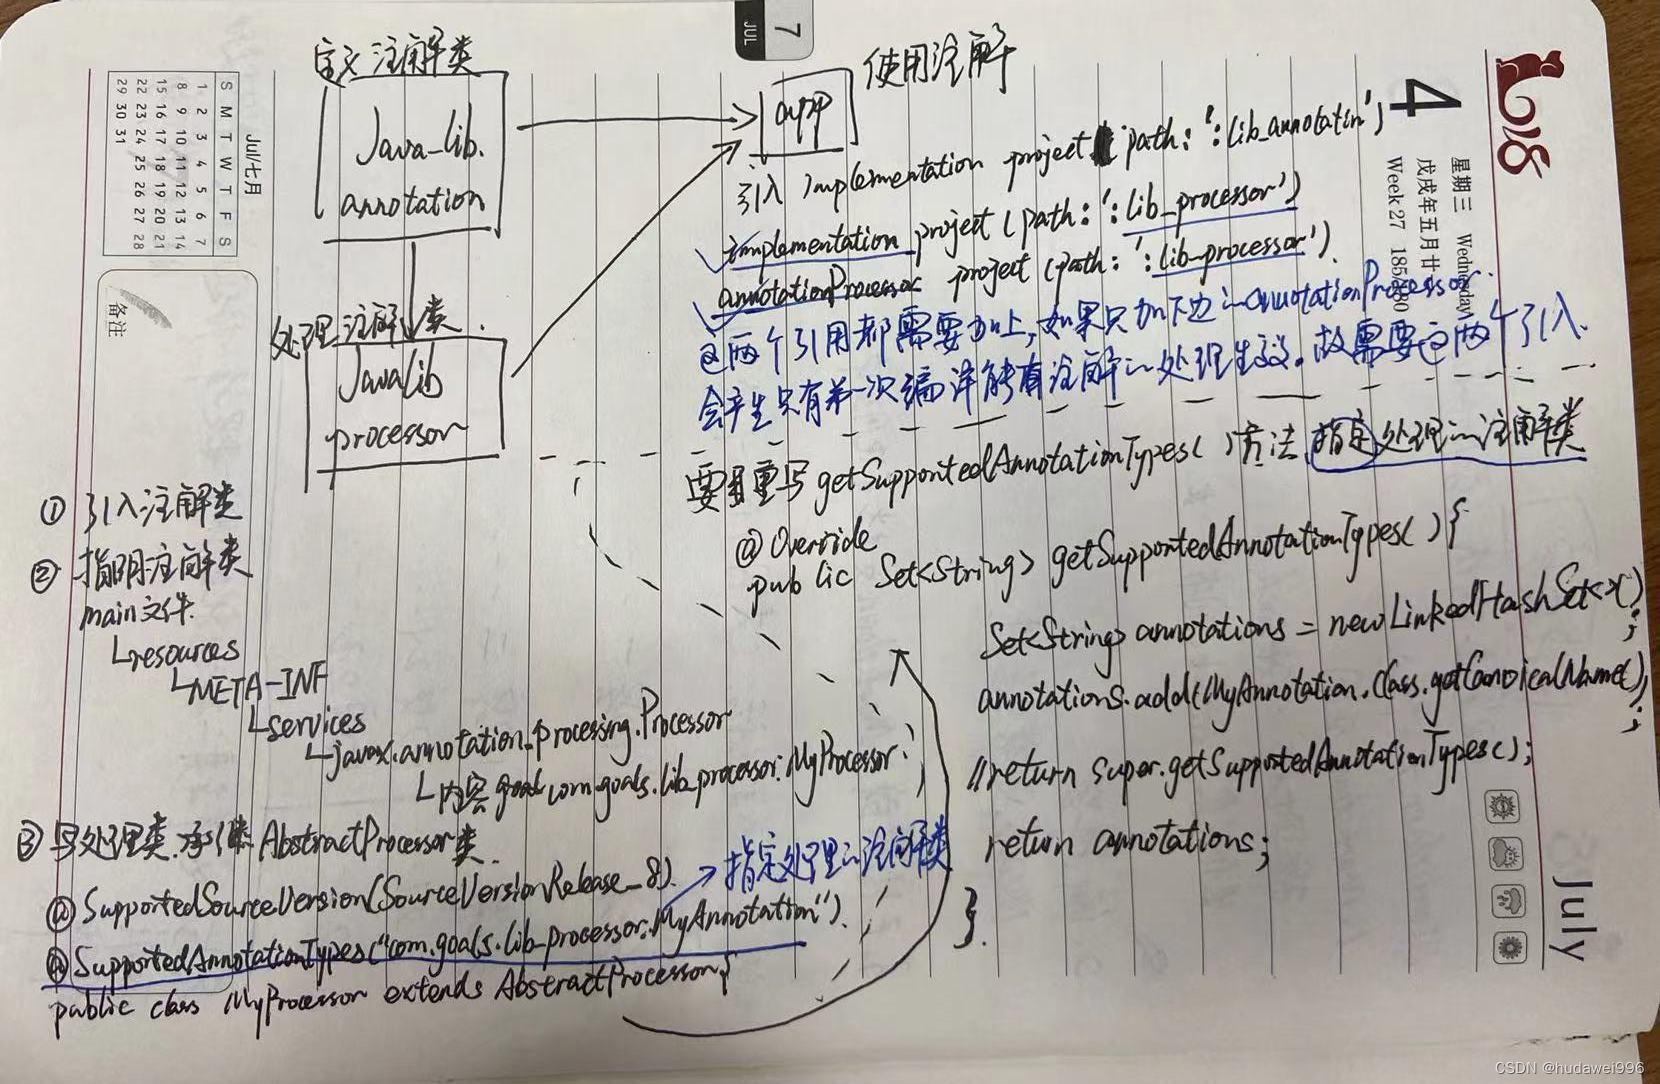 定义注解类
Java_lib.
annotation
处理注解类.
Javalib
processor
app
使用注解
引入 implementation project path: ':lib_annotatin';
implementation project (path: ':lib_processor')
annotationProcessor project (path: ':lib-processor').
这两个引用都需要加上,如果只加下边的annotationProcessor.
会产生只有第一次编译能有注解的处理生效。故需要这两个引入.
要重写 getSupportedAnnotationTypes( )方法,指定处理的注解类
@Override
public Set<String> getSupportedAnnotationTypes( ){
Set<String> annotations = new LinkedHashSet<>();
annotations.add(MyAnnotation.class.getCanoicalName();
//return super.getSupportedAnnotationTypes();
return annotations;
}.
① 引入注解类
② 指明注解类
main文件.
resources
META-INF
services
javax.annotation.processing.Processor
内容 com.goals.lib_processor.MyProcessor.
③ 写处理类.承继 AbstractProcessor类.
@SupportedSourceVersion(SourceVersion Release_8).
@SupportedAnnotationTypes("com.goals.lib_processor.MyAnnotation").
指定处理的注解类
public class MyProcessor extends AbstractProcessor{
Jul/七月
S M T W T F S
1 2 3 4 5 6 7
8 9 10 11 12 13 14
15 16 17 18 19 20 21
22 23 24 25 26 27 28
29 30 31
备注
7
JUL
2018
4
星期三 Wednesday
戊戌年五月廿一
Week 27
July
CSDN @hudawei996